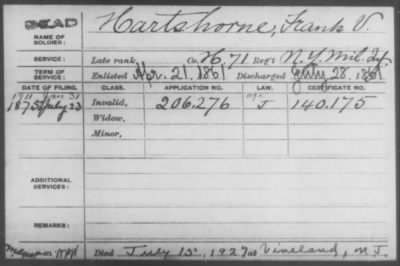 DEAD
NAME OF SOLDIER: Hartshorne, Frank V.
SERVICE: Late rank, Co. H, 71 Reg't N.Y. Mil. Inf.
TERM OF SERVICE: Enlisted Apr. 21, 1861 Discharged July 28, 1861
DATE OF FILING. CLASS. APPLICATION NO. LAW. CERTIFICATE NO.
1911 Jan 31
1875 July 23 Invalid, 206.276 J 140.175
Widow,
Minor,
ADDITIONAL SERVICES:
REMARKS:
Died July 15, 1927 at Vineland, N.J.